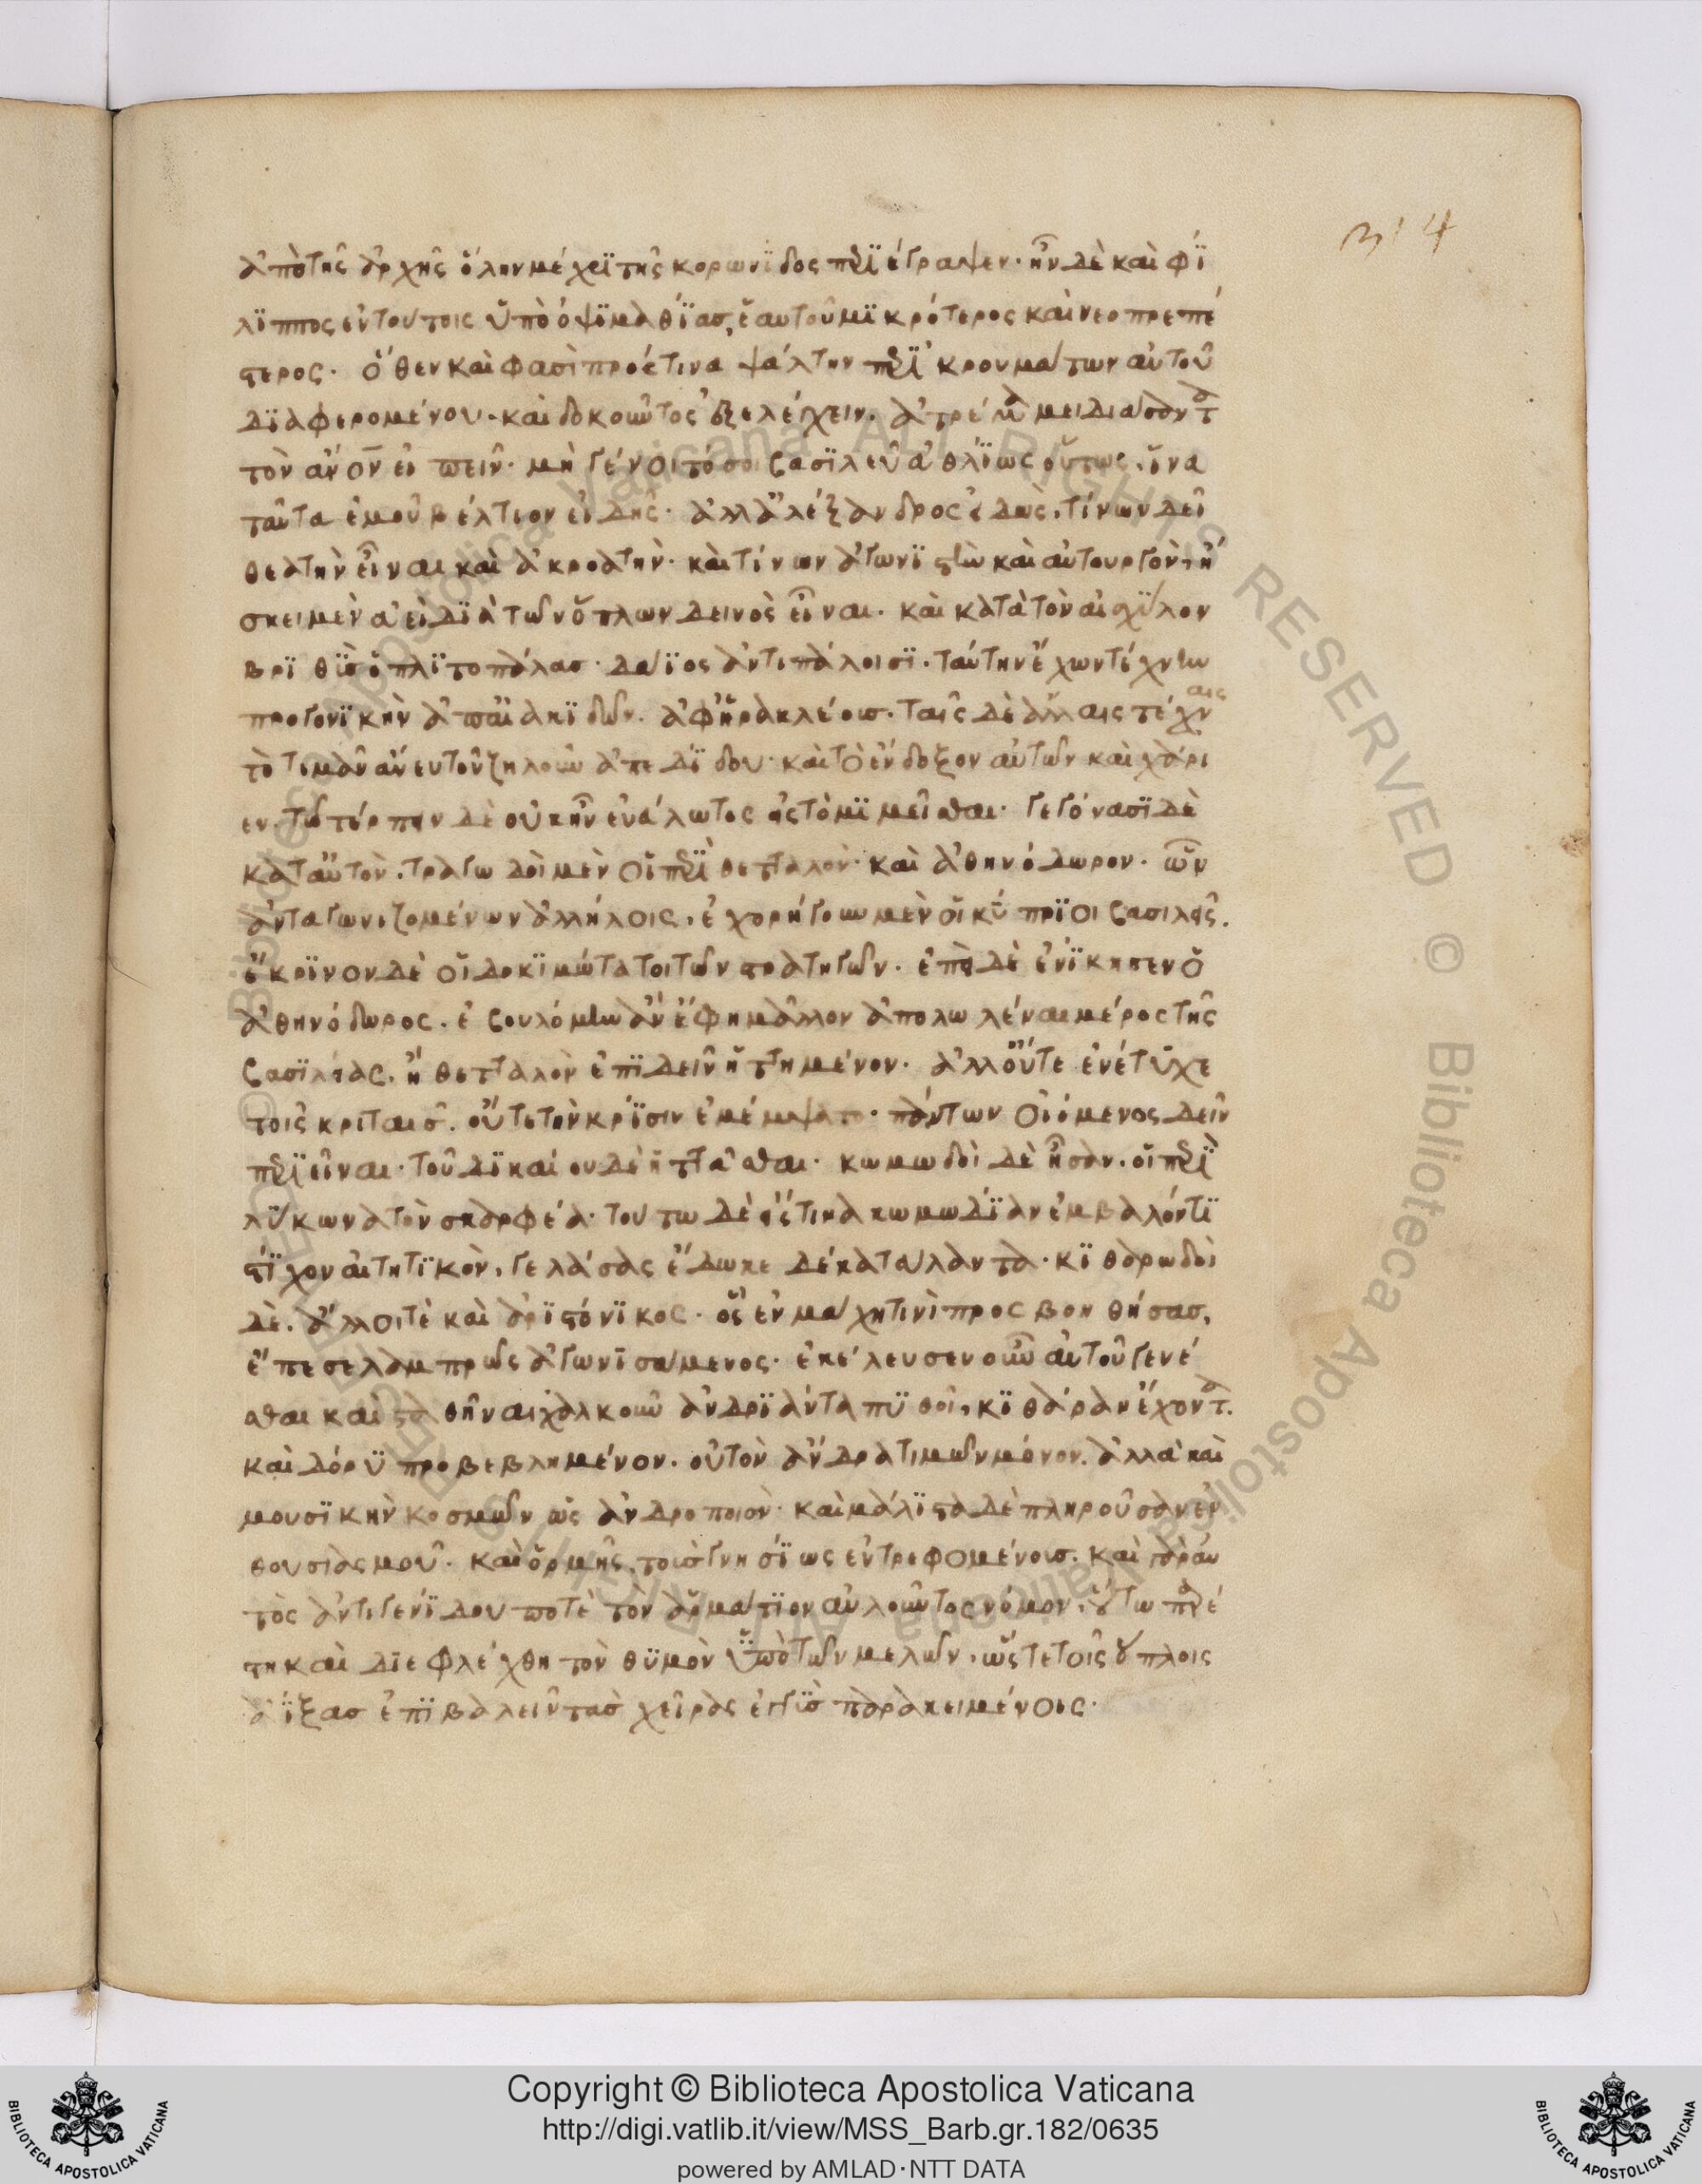 314
ἀπὸ τῆς ἀρχῆς ὅλον μέχρϊ τῆς κορωνΐδος περϊέγραψεν· ἦν δὲ καὶ φΐ
λϊππος ἐν τούτοις ὑπὸ ὀψϊμαθΐας, ἑαυτοῦ μϊκρότερος καὶ νεοπρεπέ
στερος· ὅθεν καὶ φασὶ πρός τινα ψάλτην περϊ κρουμάτων αὐτοῦ
δϊαφερομένου· καὶ δοκοῦντος ἐξελέγχειν. ἀτρέμα μειδιάσαντα
τὸν ἄνον εἰπεῖν· μὴ γένοιτό σοι βασϊλεῦ ἀθλΐως οὕτως, ἵνα
ταῦτα ἐμοῦ βέλτιον εἰδῆς· ἀλλ' ἀλέξανδρος εἰδὼς, τίνων δεῖ
θεατὴν εἶναι καὶ ἀκροατὴν· καὶ τίνων ἀγωνϊστὴν καὶ αὐτουργὸν, ἤ
σκει μὲν ἀεὶ δϊὰ τῶν ὅπλων δεινὸς εἶναι. καὶ κατὰ τὸν αἰσχΰλον
βρϊθὺς ὁπλϊτοπάλας· δάϊος ἀντιπάλοισϊ. ταύτην ἔχων τέχνην
προγονϊκὴν ἀπ' αἰακϊδῶν. ἀφ' ἡρακλέους. ταῖς δὲ ἄλλαις τέχναις
τὸ τιμᾶν ἄνευ τοῦ ζηλοῦν ἀπεδΐδου· κατὰ τὸ ἔνδοξον αὐτῶν καὶ χάρι
εν. τῶ τέρπειν δὲ οὐκ ἦν εὐάλωτος εἰς τὸ μϊμεῖσθαι· γεγόνασϊ δὲ
κατ' αὐτὸν. τραγωδοὶ μὲν οἱ περϊ θετταλὸν· καὶ ἀθηνόδωρον. ὧν
ἀνταγωνιζομένων ἀλλήλοις, ἐχορήγουν μὲν οἱ κύπρϊοι βασιλεῖς.
ἔκρϊνον δὲ οἱ δοκϊμώτατοι τῶν στρατηγῶν. ἐπεὶ δὲ ἐνΐκησεν ὁ
ἀθηνόδωρος. ἐβουλόμην ἂν ἔφη μᾶλλον ἀπολωλέναι μέρος τῆς
βασϊλείας. ἢ θετταλὸν ἐπϊδεῖν ἡττημένον. ἀλλ' οὔτε ἐνέτυχε
τοῖς κριταῖς. οὔτε τὴν κρΐσιν ἐμέμψατο· πάντων οἰόμενος δεῖν
περϊεῖναι· τοῦ δϊκαίου δὲ ἡττᾶσθαι· κωμωδοὶ δὲ ἦσαν. οἱ περϊ
λύκωνα τὸν σκαρφέα. τούτω δὲ εἴς τινα κωμωδΐαν ἐμβαλόντϊ
στΐχον αἰτητϊκὸν, γελάσας ἔδωκε δέκα τάλαντα· κϊθαρωδοὶ
δὲ. ἄλλοι τὲ καὶ ἀρϊστόνϊκος· ὃς ἐν μάχη τινὶ προσβοηθήσας,
ἔπεσε λαμπρῶς ἀγωνϊσάμενος· ἐκέλευσεν οὖν αὐτοῦ γενέ
σθαι καὶ σταθῆναι χαλκοῦν ἀνδρϊάντα πυθοῖ, κϊθάραν ἔχοντα.
καὶ δόρυ προβεβλημένον. οὐ τὸν ἄνδρα τιμῶν μόνον. ἀλλὰ καὶ
μουσϊκὴν κοσμῶν ὡς ἀνδροποιὸν· καὶ μάλϊστα δὲ πληροῦσαν ἐν
θουσιασμοῦ· καὶ ὁρμῆς, τοὺς γνησΐως ἐντρεφομένους. καὶ γὰρ αὐ
τὸς ἀντιγενΐδου ποτὲ τὸν ἁρμάτϊον αὐλοῦντος νόμον, οὕτω παρέ
στη καὶ δϊεφλέχθη τὸν θυμὸν ὑπὸ τῶν μελῶν, ὥστε τοῖς ὅπλοις
ἀΐξας ἐπϊβαλεῖν τὰς χεῖρας ἐγγὺς παρακειμένοις·
Copyright © Biblioteca Apostolica Vaticana
http://digi.vatlib.it/view/MSS_Barb.gr.182/0635
powered by AMLAD·NTT DATA